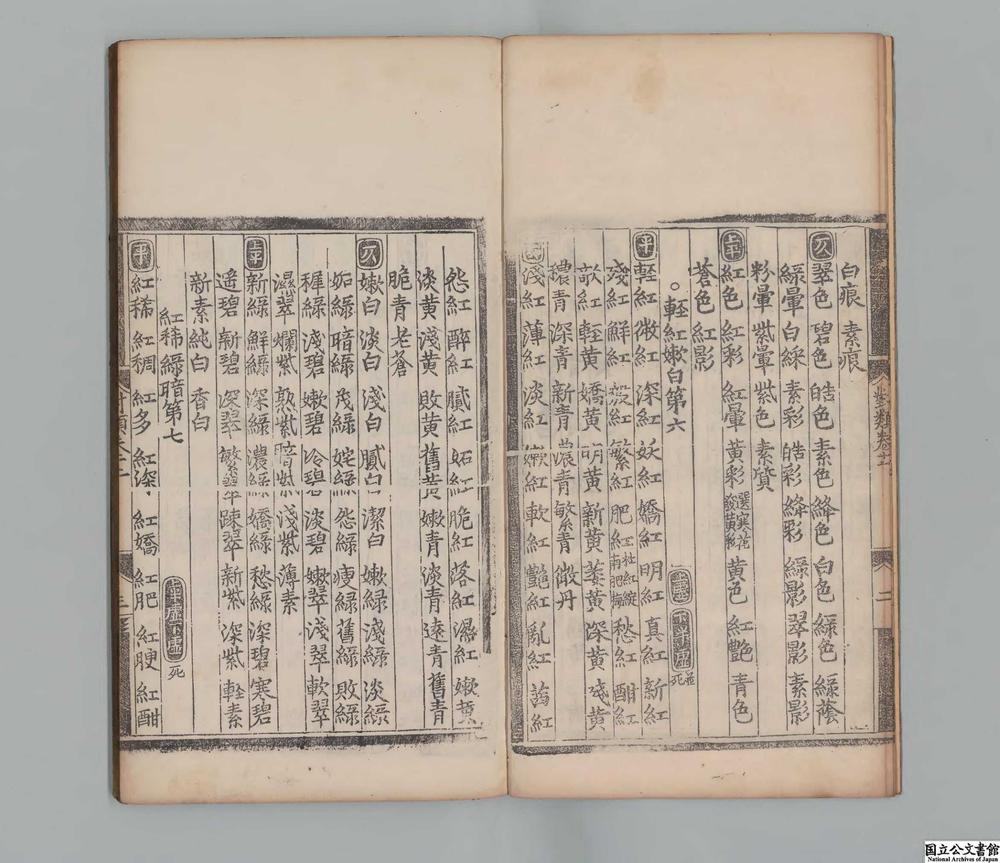 白痕 素痕
仄 翠色 碧色 皓色 素色 絳色 白色 綠色 綠蔭
綠暈 白綵 素彩 皓彩 絳彩 綠影 翠影 素影
粉暈 紫暈 紫色 素質
上平 紅色 紅彩 紅暈 黃彩 黃色 紅艷 青色
蒼色 紅影
○輕紅嫩白第六
平 輕紅 微紅 深紅 妖紅 嬌紅 明紅 真紅 新紅
殘紅 鮮紅 殷紅 繁紅 肥紅 愁紅 酣紅
欹紅 輕黃 嬌黃 明黃 新黃 蒸黃 深黃 殘黃
穠青 深青 新青 濃青 繁青 微丹
淺紅 薄紅 淡紅 嫩紅 軟紅 艷紅 亂紅
對類卷
二
怨紅 醉紅 膩紅 妬紅 脆紅 落紅 濕紅 嫩黃
淡黃 淺黃 敗黃 舊黃 嫩青 淡青 遠青 舊青
脆青 老蒼
仄 嫩白 淡白 淺白 膩白 潔白 嫩綠 淺綠 淡綠
妬綠 暗綠 茂綠 姹綠 怨綠 瘦綠 舊綠 敗綠
稺綠 淺碧 嫩碧 冷碧 淡碧 嫩翠 淺翠 軟翠
濕翠 爛紫 熟紫 暗紫 淺紫 薄素
上平 新綠 鮮綠 深綠 濃綠 嬌綠 愁綠 深碧 寒碧
遥碧 新碧 深翠 繁翠 踈翠 新紫 深紫 輕素
新素 純白 香白
紅稀綠暗第七 上平虛下虛死
平 紅稀 紅稠 紅多 紅深 紅嬌 紅肥 紅酣
三
国立公文書館
National Archives of Japan